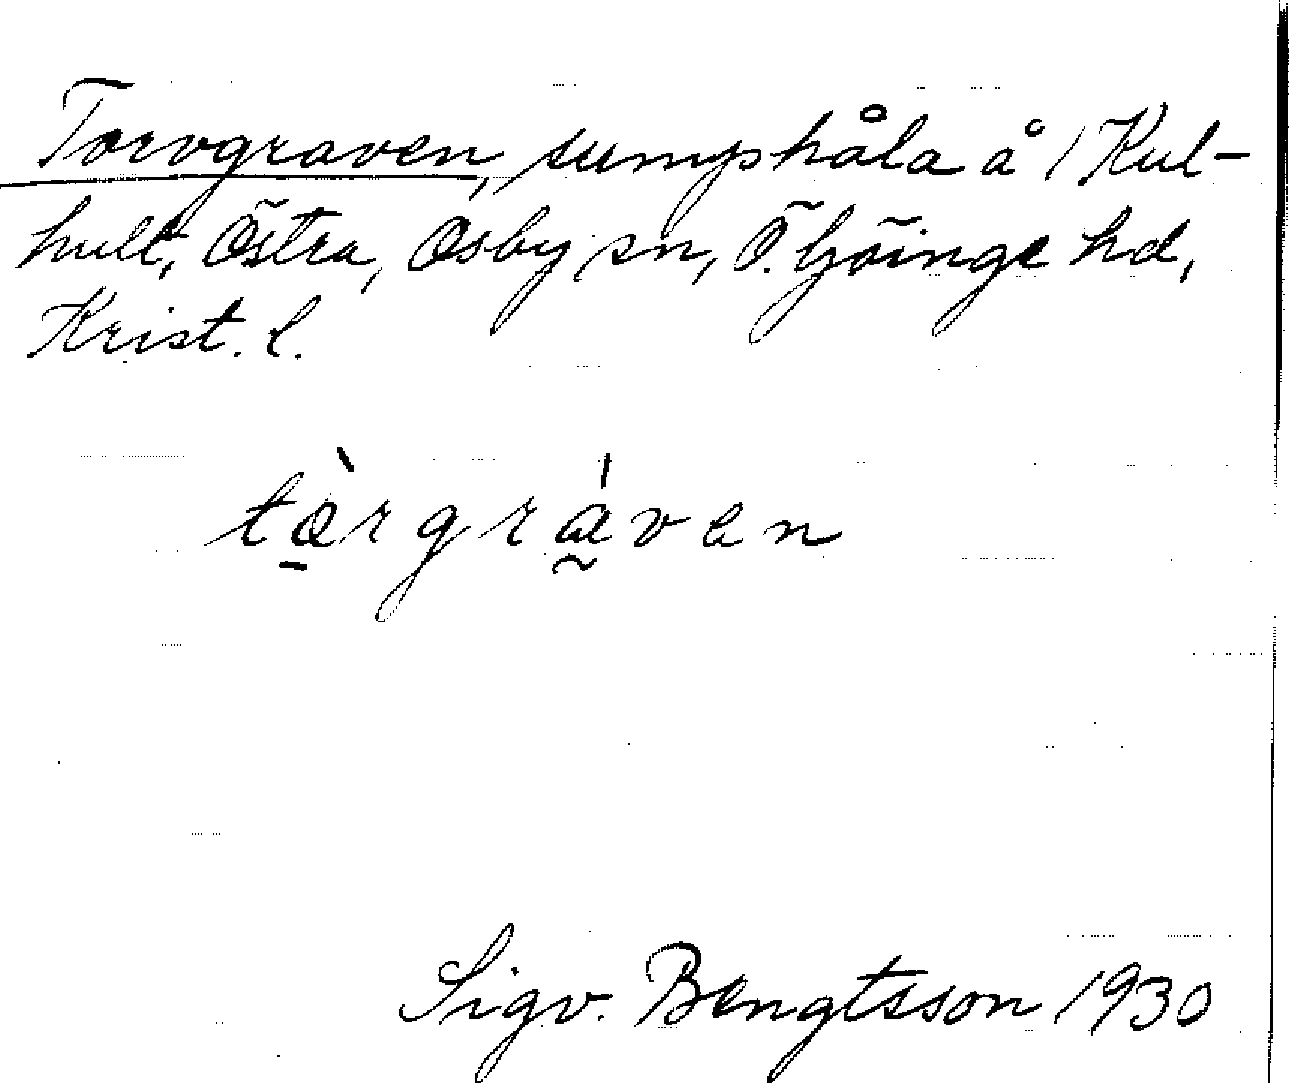 Torvgraven, sumphåla å 1 Kul-
hult, Östra, Osby sn, Ö. Göinge hd,
Krist. l.
tòrgráven
Sigv. Bengtsson 1930